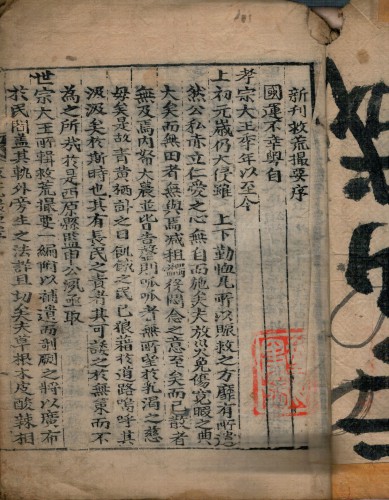 新刊救荒撮要序
國運不幸粤自
孝宗大王季年以至今
上初元歲仍大侵雖 上下勤恤凡所以賑救之方靡有所遺
然公私赤立仁愛之心無自而施矣夫放災免傷寬暇之典
大矣而無田者無與焉減租 後閭念之意至矣而已散者
無及焉內如大農並皆告詘則咻咻者無所望於乳湯之慈
毋矣是故青黃栖訃之日飢餓之民已狼藉於道路嗚呼其
汲汲矣於斯時也其有長民之責者其可諉之於無策而不
為之所哉於是西原縣監申公夙亟取
世宗大王所輯救荒撮要一編附以補遺而剞劂之將以廣布
於民間蓋其軌外旁生之法詳且切矣夫草根木皮酸辣相